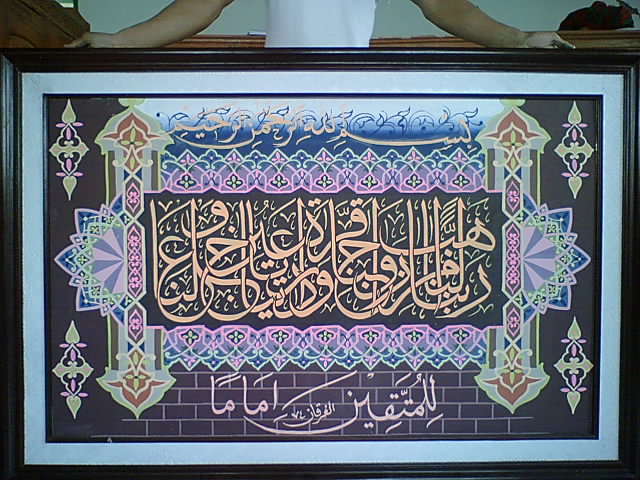 بسم الله الرحمن الرحيم
ربنا هب لنا من أزواجنا وذرياتنا قرة أعين واجعلنا
لِلْمُتَّقِيْنَ اِمَامًا
الفرقان ٧٤